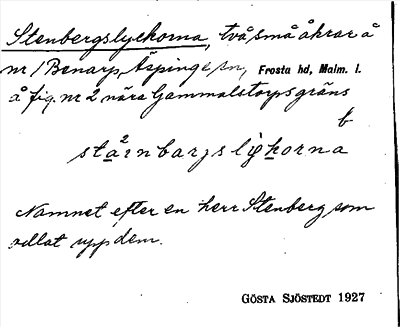 Stenbergslyckorna, två små åkrar å
nr 1 Benarp, Äspinge sn, Frosta hd, Malm. l.
å fig. nr 2 nära Gammalstorps gräns
b
Namnet efter en herr Stenberg som
odlat upp dem.
GÖSTA SJÖSTEDT 1927